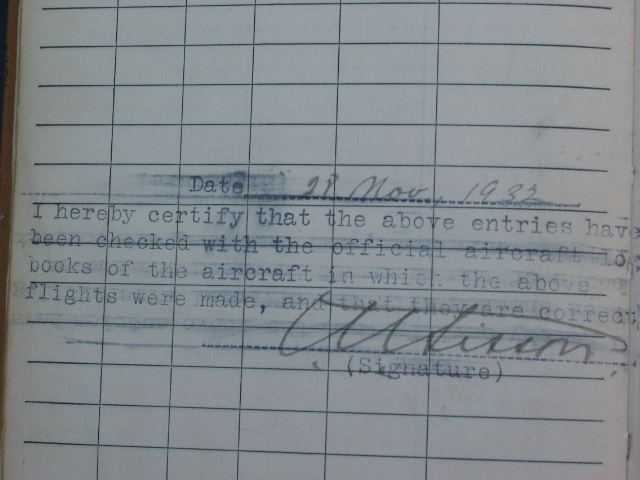 Date 28 Nov, 1932
I hereby certify that the above entries have
been checked with the official aircraft log
books of the aircraft in which the above
flights were made, and that they are correct
(Signature)